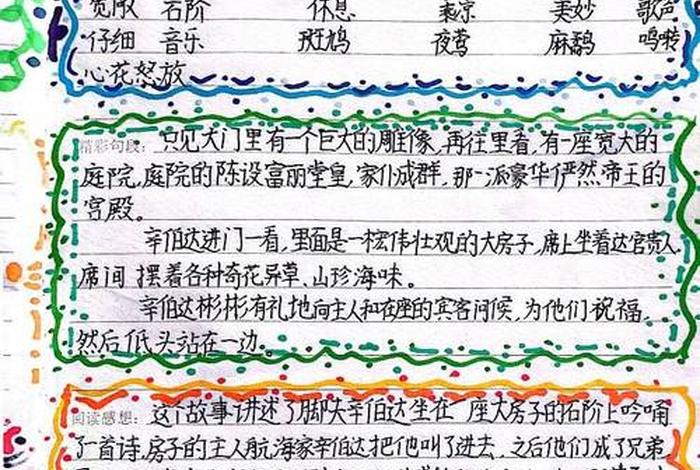 宽敞 石阶 休息 乘凉 美妙 歌声
仔细 音乐 斑鸠 夜莺 麻鹬 鸣啭
心花怒放
精彩句段: 只见大门里有一个巨大的雕像,再往里看,有一座宽大的
庭院,庭院的陈设富丽堂皇,家仆成群,那一派豪华俨然帝王的
宫殿。
辛伯达进门一看,里面是一栋宏伟壮观的大房子,席上坐着达官贵人,
席间摆着各种奇花异草、山珍海味。
辛伯达彬彬有礼地向主人和在座的宾客问候,为他们祝福,
然后低头站在一边。
阅读感想: 这个故事讲述了脚夫辛伯达坐在一座大房子的石阶上吟诵
了一首诗,房子的主人航海家辛伯达把他叫了进去,之后他们成了兄弟,